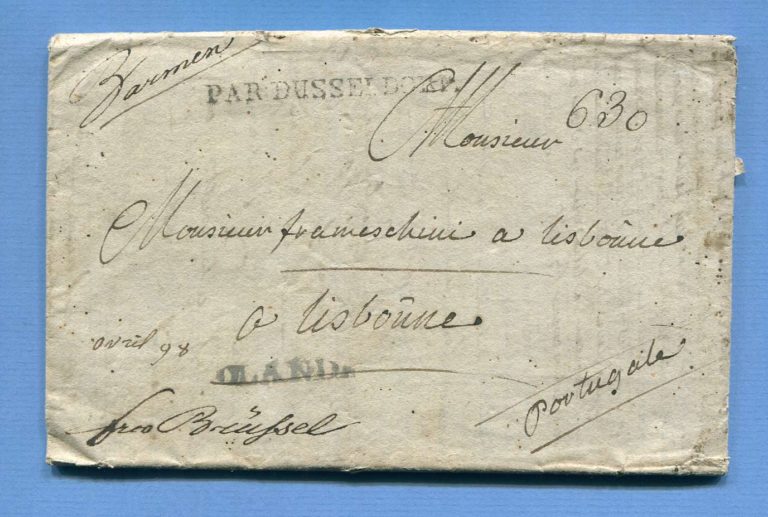 Barmen
PAR DUSSELDORP.
Monsieur 630
Monsieur frameschini a lisbonne
a lisbonne
avril 98
OLANDE
Portugale
frco Brüssel